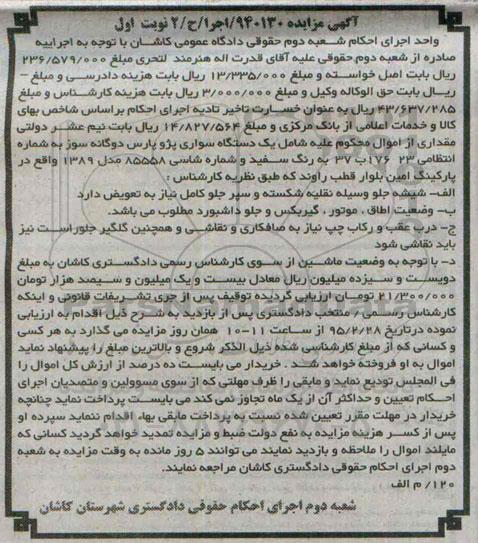 آگهی مزایده ۹۴۰۱۳۰/اجرا/ح/۲ نوبت اول
واحد اجرای احکام شعبه دوم حقوقی دادگاه عمومی کاشان با توجه به اجراییه
صادره از شعبه دوم حقوقی علیه آقای قدرت اله هنرمند لتحری مبلغ ۲۳۶/۵۷۹/۰۰۰
ریال بابت اصل خواسته و مبلغ ۱۳/۳۳۵/۰۰۰ ریال بابت هزینه دادرسی و مبلغ -
ریال بابت حق الوکاله وکیل و ۳/۰۰۰/۰۰۰ ریال بابت هزینه کارشناس و مبلغ
۴۳/۶۳۷/۲۸۵ ریال به عنوان خسارت تاخیر تادیه اجرای احکام براساس شاخص بهای
کالا و خدمات اعلامی از بانک مرکزی و مبلغ ۱۴/۸۲۷/۵۶۴ ریال بابت نیم عشر دولتی
مقداری از اموال محکوم علیه شامل یک دستگاه سواری پژو پارس دوگانه سوز به شماره
انتظامی ۲۳ ۱۷۶ب ۳۷ به رنگ سفید و شماره شاسی ۸۵۵۵۸ مدل ۱۳۸۹ واقع در
پارکینگ امین بلوار قطب راوند که طبق نظریه کارشناس :
الف- شیشه جلو وسیله نقلیه شکسته و سپر جلو کامل نیاز به تعویض دارد
ب- وضعیت اطاق ، موتور ، گیربکس و جلو داشبورد مطلوب می باشد.
ج- درب عقب و رکاب چپ نیاز به صافکاری و نقاشی و همچنین گلگیر جلوراست نیز
باید نقاشی شود
د- با توجه به وضعیت ماشین از سوی کارشناس رسمی دادگستری کاشان به مبلغ
دویست و سیزده میلیون ریال معادل بیست و یک میلیون و سیصد هزار تومان
۲۱/۳۰۰/۰۰۰ تومان ارزیابی گردیده توقیف پس از جری تشریفات قانونی و اینکه
کارشناس رسمی / منتخب دادگستری پس از بازدید به شرح ذیل اقدام به ارزیابی
نموده درتاریخ ۹۵/۲/۲۸ از ساعت ۱۱-۱۰ همان روز مزایده می گذارد به هر کسی
و کسانی که از مبلغ کارشناسی شده ذیل الذکر شروع و بالاترین مبلغ را پیشنهاد نماید
اموال به او فروخته خواهد شد . خریدار می بایست ده درصد از ارزش کل اموال را
فی المجلس تودیع نماید و مابقی را ظرف مهلتی که از سوی مسوولین و متصدیان اجرای
احکام تعیین و حداکثر آن از یک ماه تجاوز نمی کند می بایست پرداخت نماید چنانچه
خریدار در مهلت مقرر تعیین شده نسبت به پرداخت مابقی بهاء اقدام ننماید سپرده او
پس از کسر هزینه مزایده به نفع دولت ضبط و مزایده تمدید خواهد گردید کسانی که
مایلند اموال را ملاحظه و بازدید نمایند می توانند ۵ روز مانده به وقت مزایده به شعبه
دوم اجرای احکام حقوقی دادگستری کاشان مراجعه نمایند.
۱۲۰/ م الف
شعبه دوم اجرای احکام حقوقی دادگستری شهرستان کاشان